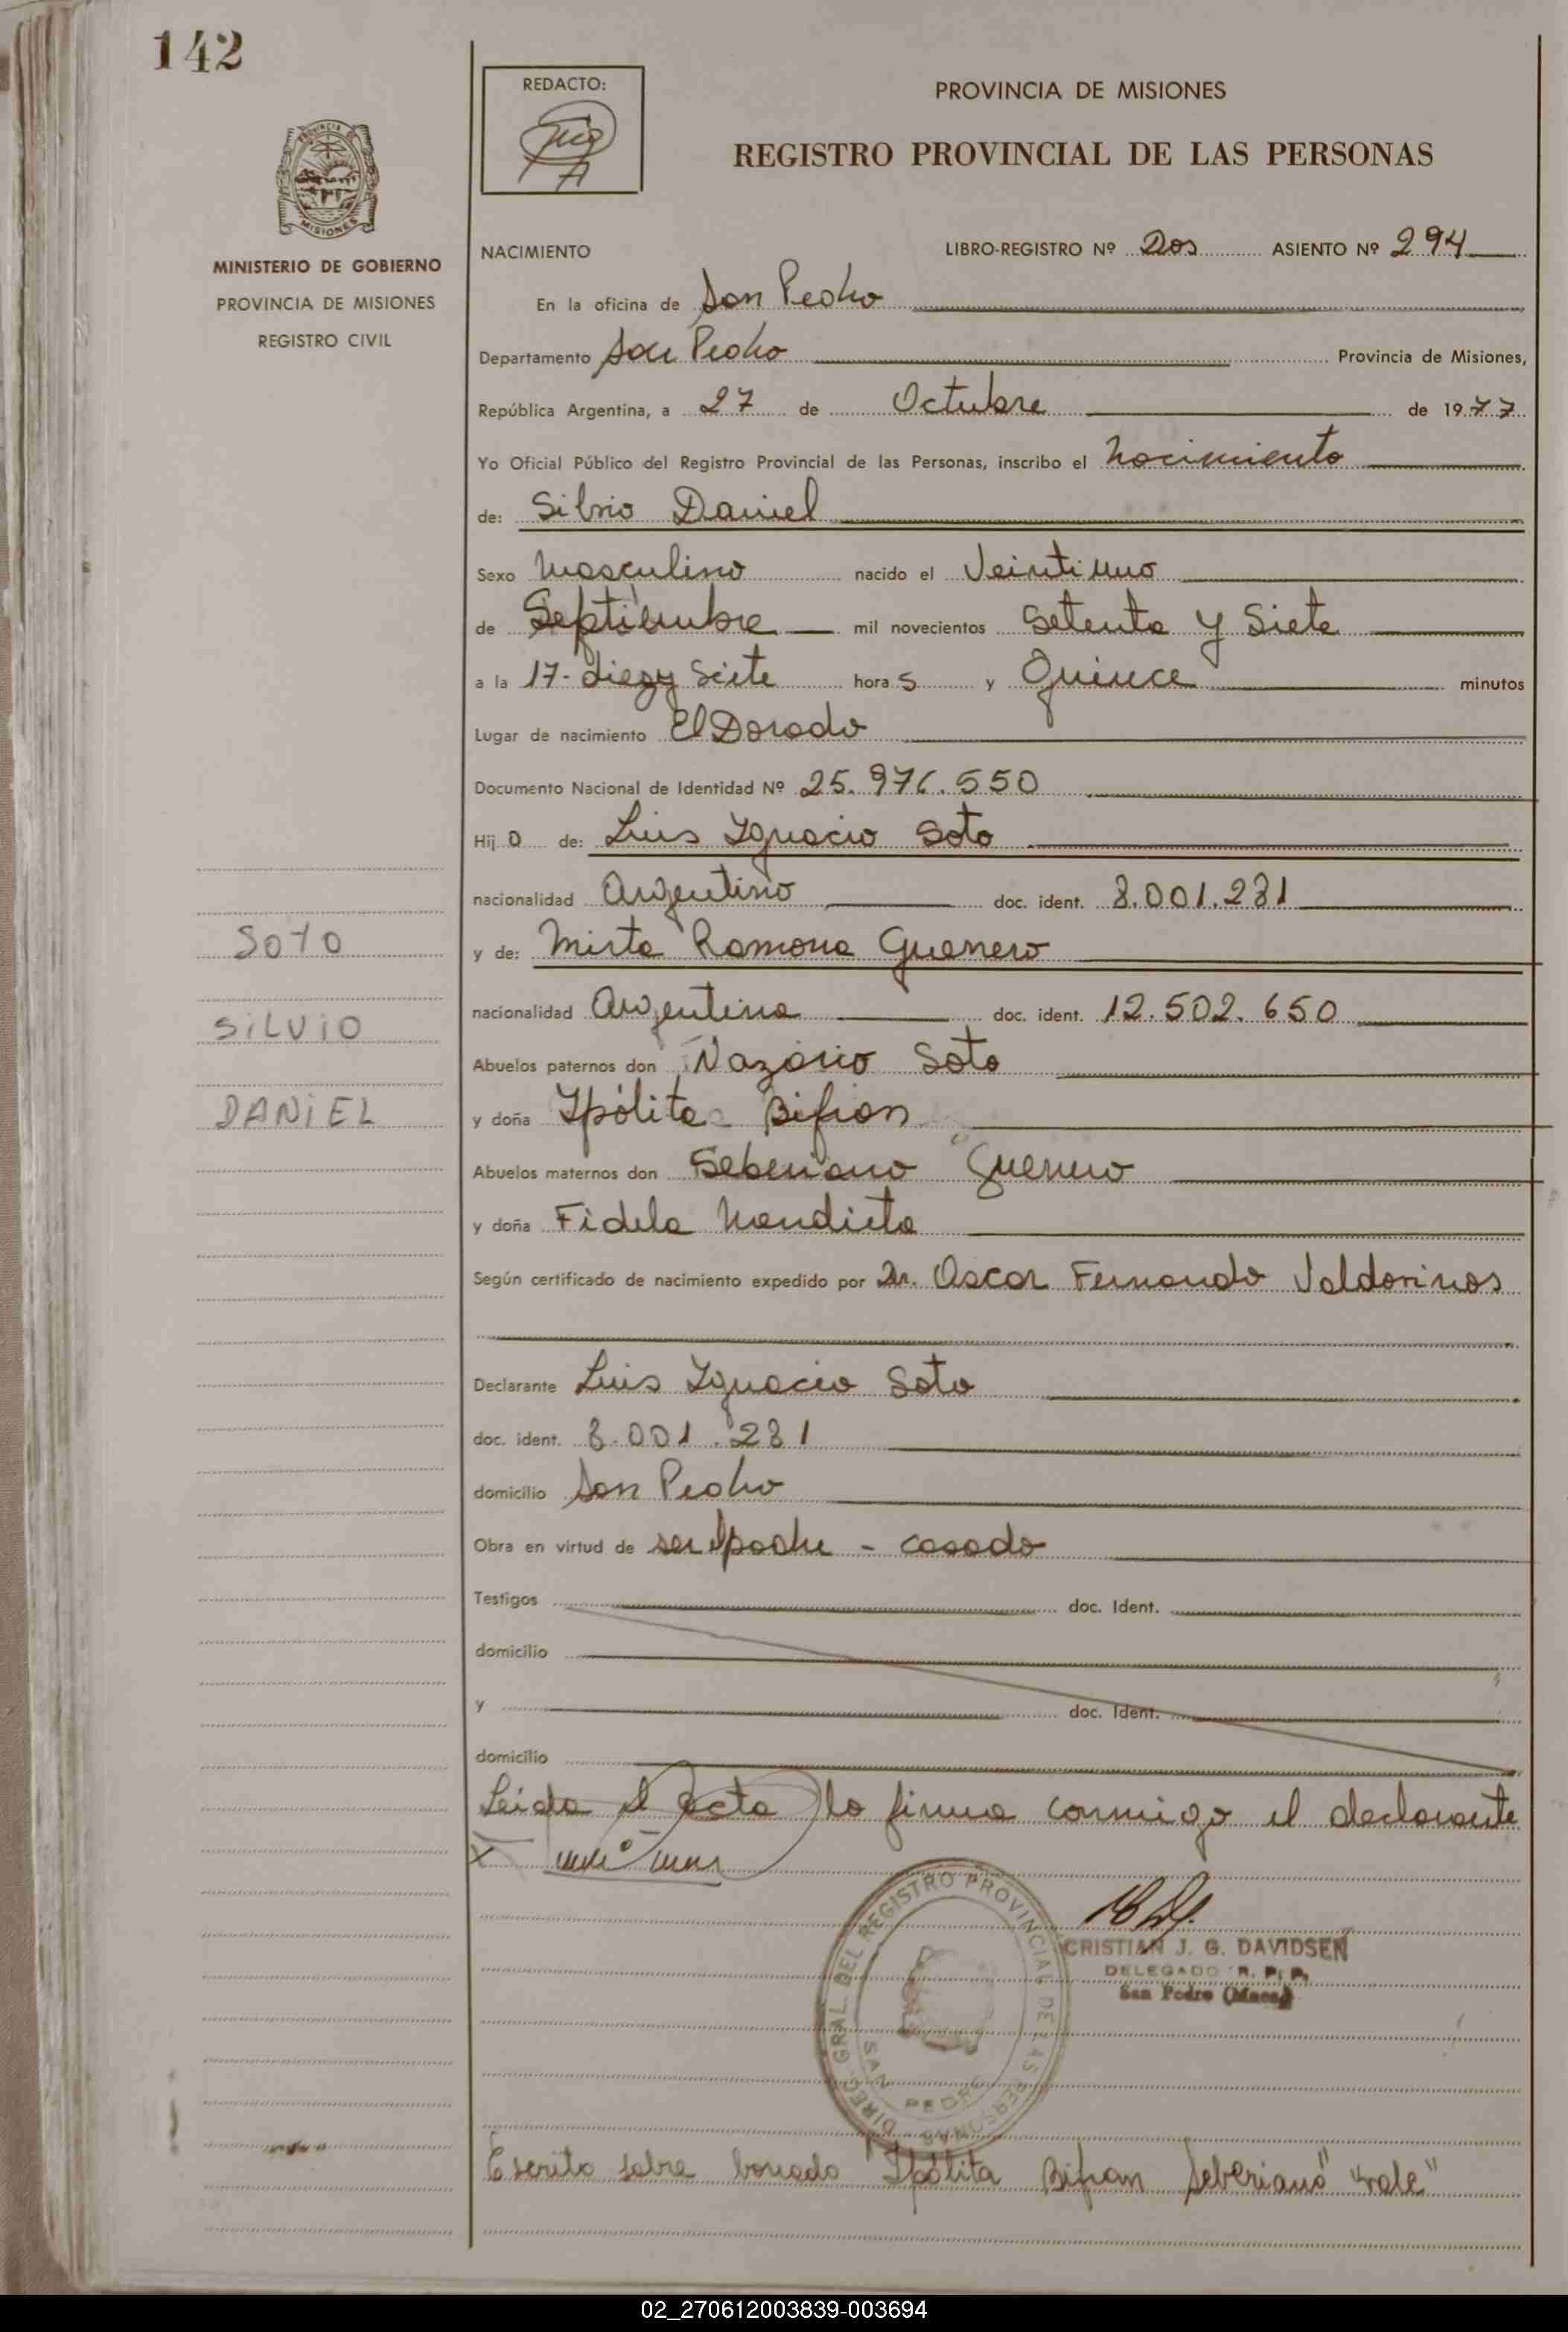 142
REDACTO:
PROVINCIA DE MISIONES
REGISTRO PROVINCIAL DE LAS PERSONAS
MISIONES
MINISTERIO DE GOBIERNO
PROVINCIA DE MISIONES
REGISTRO CIVIL
NACIMIENTO LIBRO-REGISTRO Nº Dos ASIENTO Nº 294
En la oficina de San Pedro
Departamento San Pedro Provincia de Misiones,
República Argentina, a 27 de Octubre de 1977
Yo Oficial Público del Registro Provincial de las Personas, inscribo el Nacimiento
de: Silvio Daniel
Sexo Masculino nacido el Veintiuno
de Septiembre mil novecientos Setenta y Siete
a la 17- diez y Siete horas y Quince minutos
Lugar de nacimiento El Dorado
Documento Nacional de Identidad Nº 25.976.550
Hijo de: Luis Ignacio Soto
nacionalidad Argentino doc. ident. 8.001.281
SOTO
y de: Mirta Ramona Guerrero
nacionalidad Argentina doc. ident. 12.502.650
SILVIO
Abuelos paternos don Nazario Soto
DANIEL
y doña Ipólita Bifran
Abuelos maternos don Seberiano Guerrero
y doña Fidela Mendieta
Según certificado de nacimiento expedido por Dr. Oscar Fernando Valdorinos
Declarante Luis Ignacio Soto
doc. ident. 8.001.281
domicilio San Pedro
Obra en virtud de ser padre - casado
Testigos doc. Ident.
domicilio
y doc. Ident.
domicilio
Leida el acta lo firma conmigo el declarante
X
DIREC. GRAL. DEL REGISTRO PROVINCIAL DE LAS PERSONAS
SAN PEDRO
CRISTIAN J. G. DAVIDSEN
DELEGADO R. P. P.
San Pedro (Mnes)
Escrito sobre borrado "Ipólita Bifran Seberiano" "vale"
02_270612003839-003694